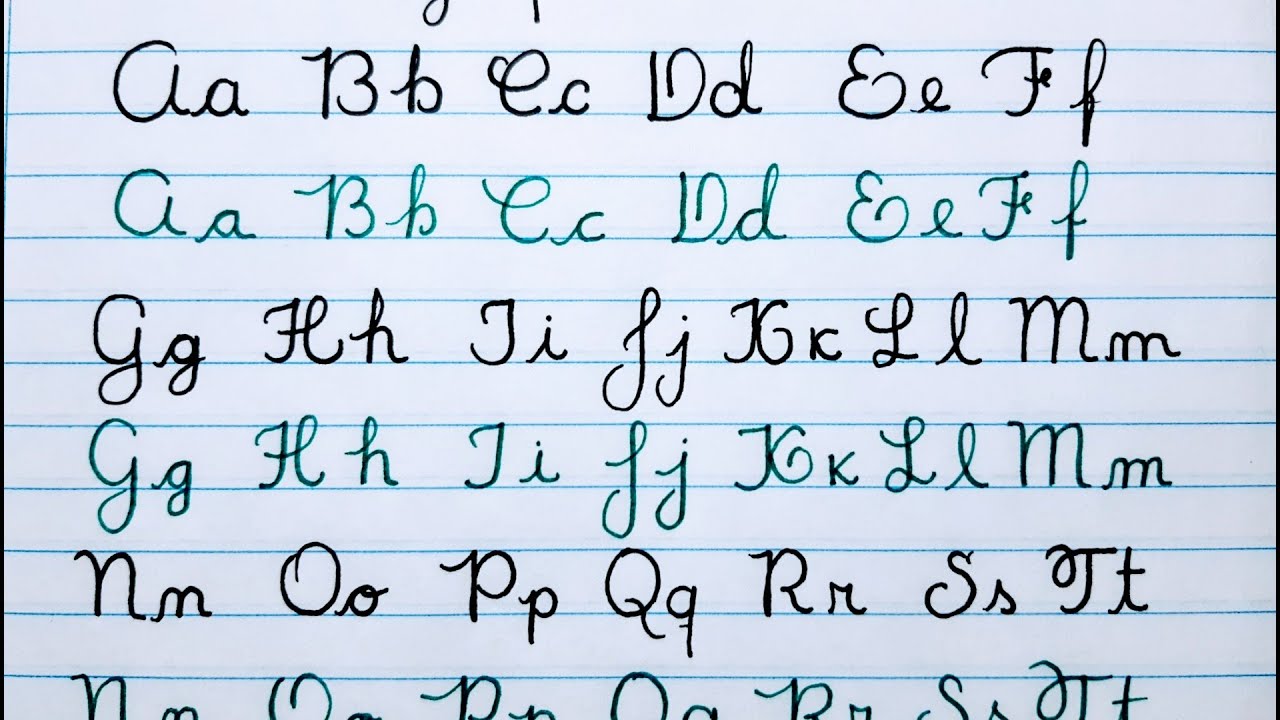 Aa Bb Cc Dd Ee Ff
Aa Bb Cc Dd Ee Ff
Gg Hh Ii Jj Kk Ll Mm
Gg Hh Ii Jj Kk Ll Mm
Nn Oo Pp Qq Rr Ss Tt
Nn Oo Pp Qq Rr Ss Tt